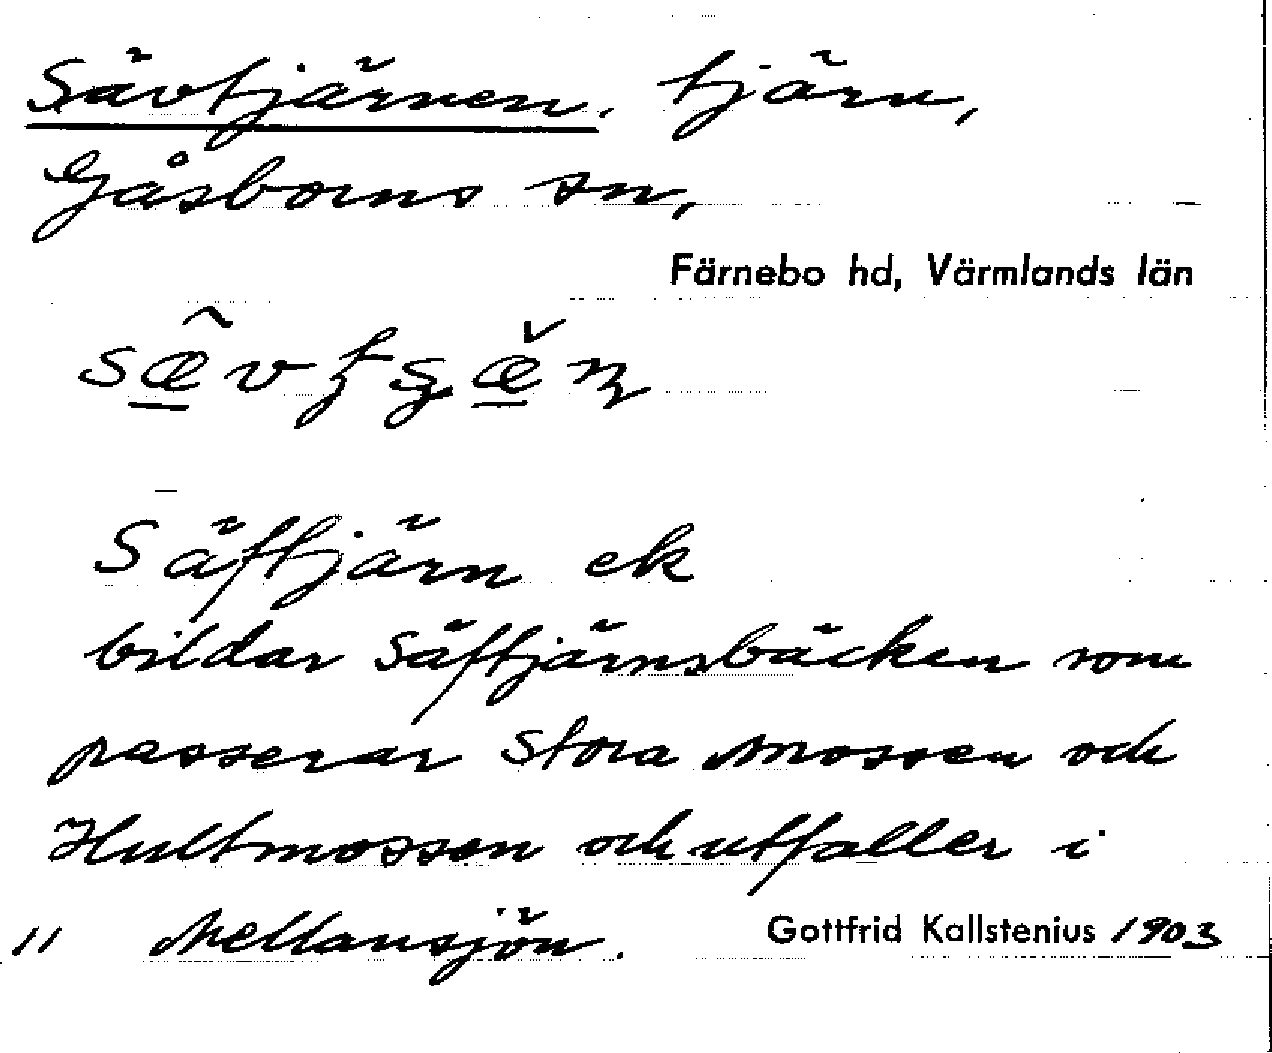 Sävtjärnen. tjärn,
Gåsborns sn,
Färnebo hd, Värmlands län
Säftjärn ek
bildar Säftjärnsbäcken som
passerar Stora Mossen och
Hultmossen och utfaller i
11 Mellansjön. Gottfrid Kallstenius 1903